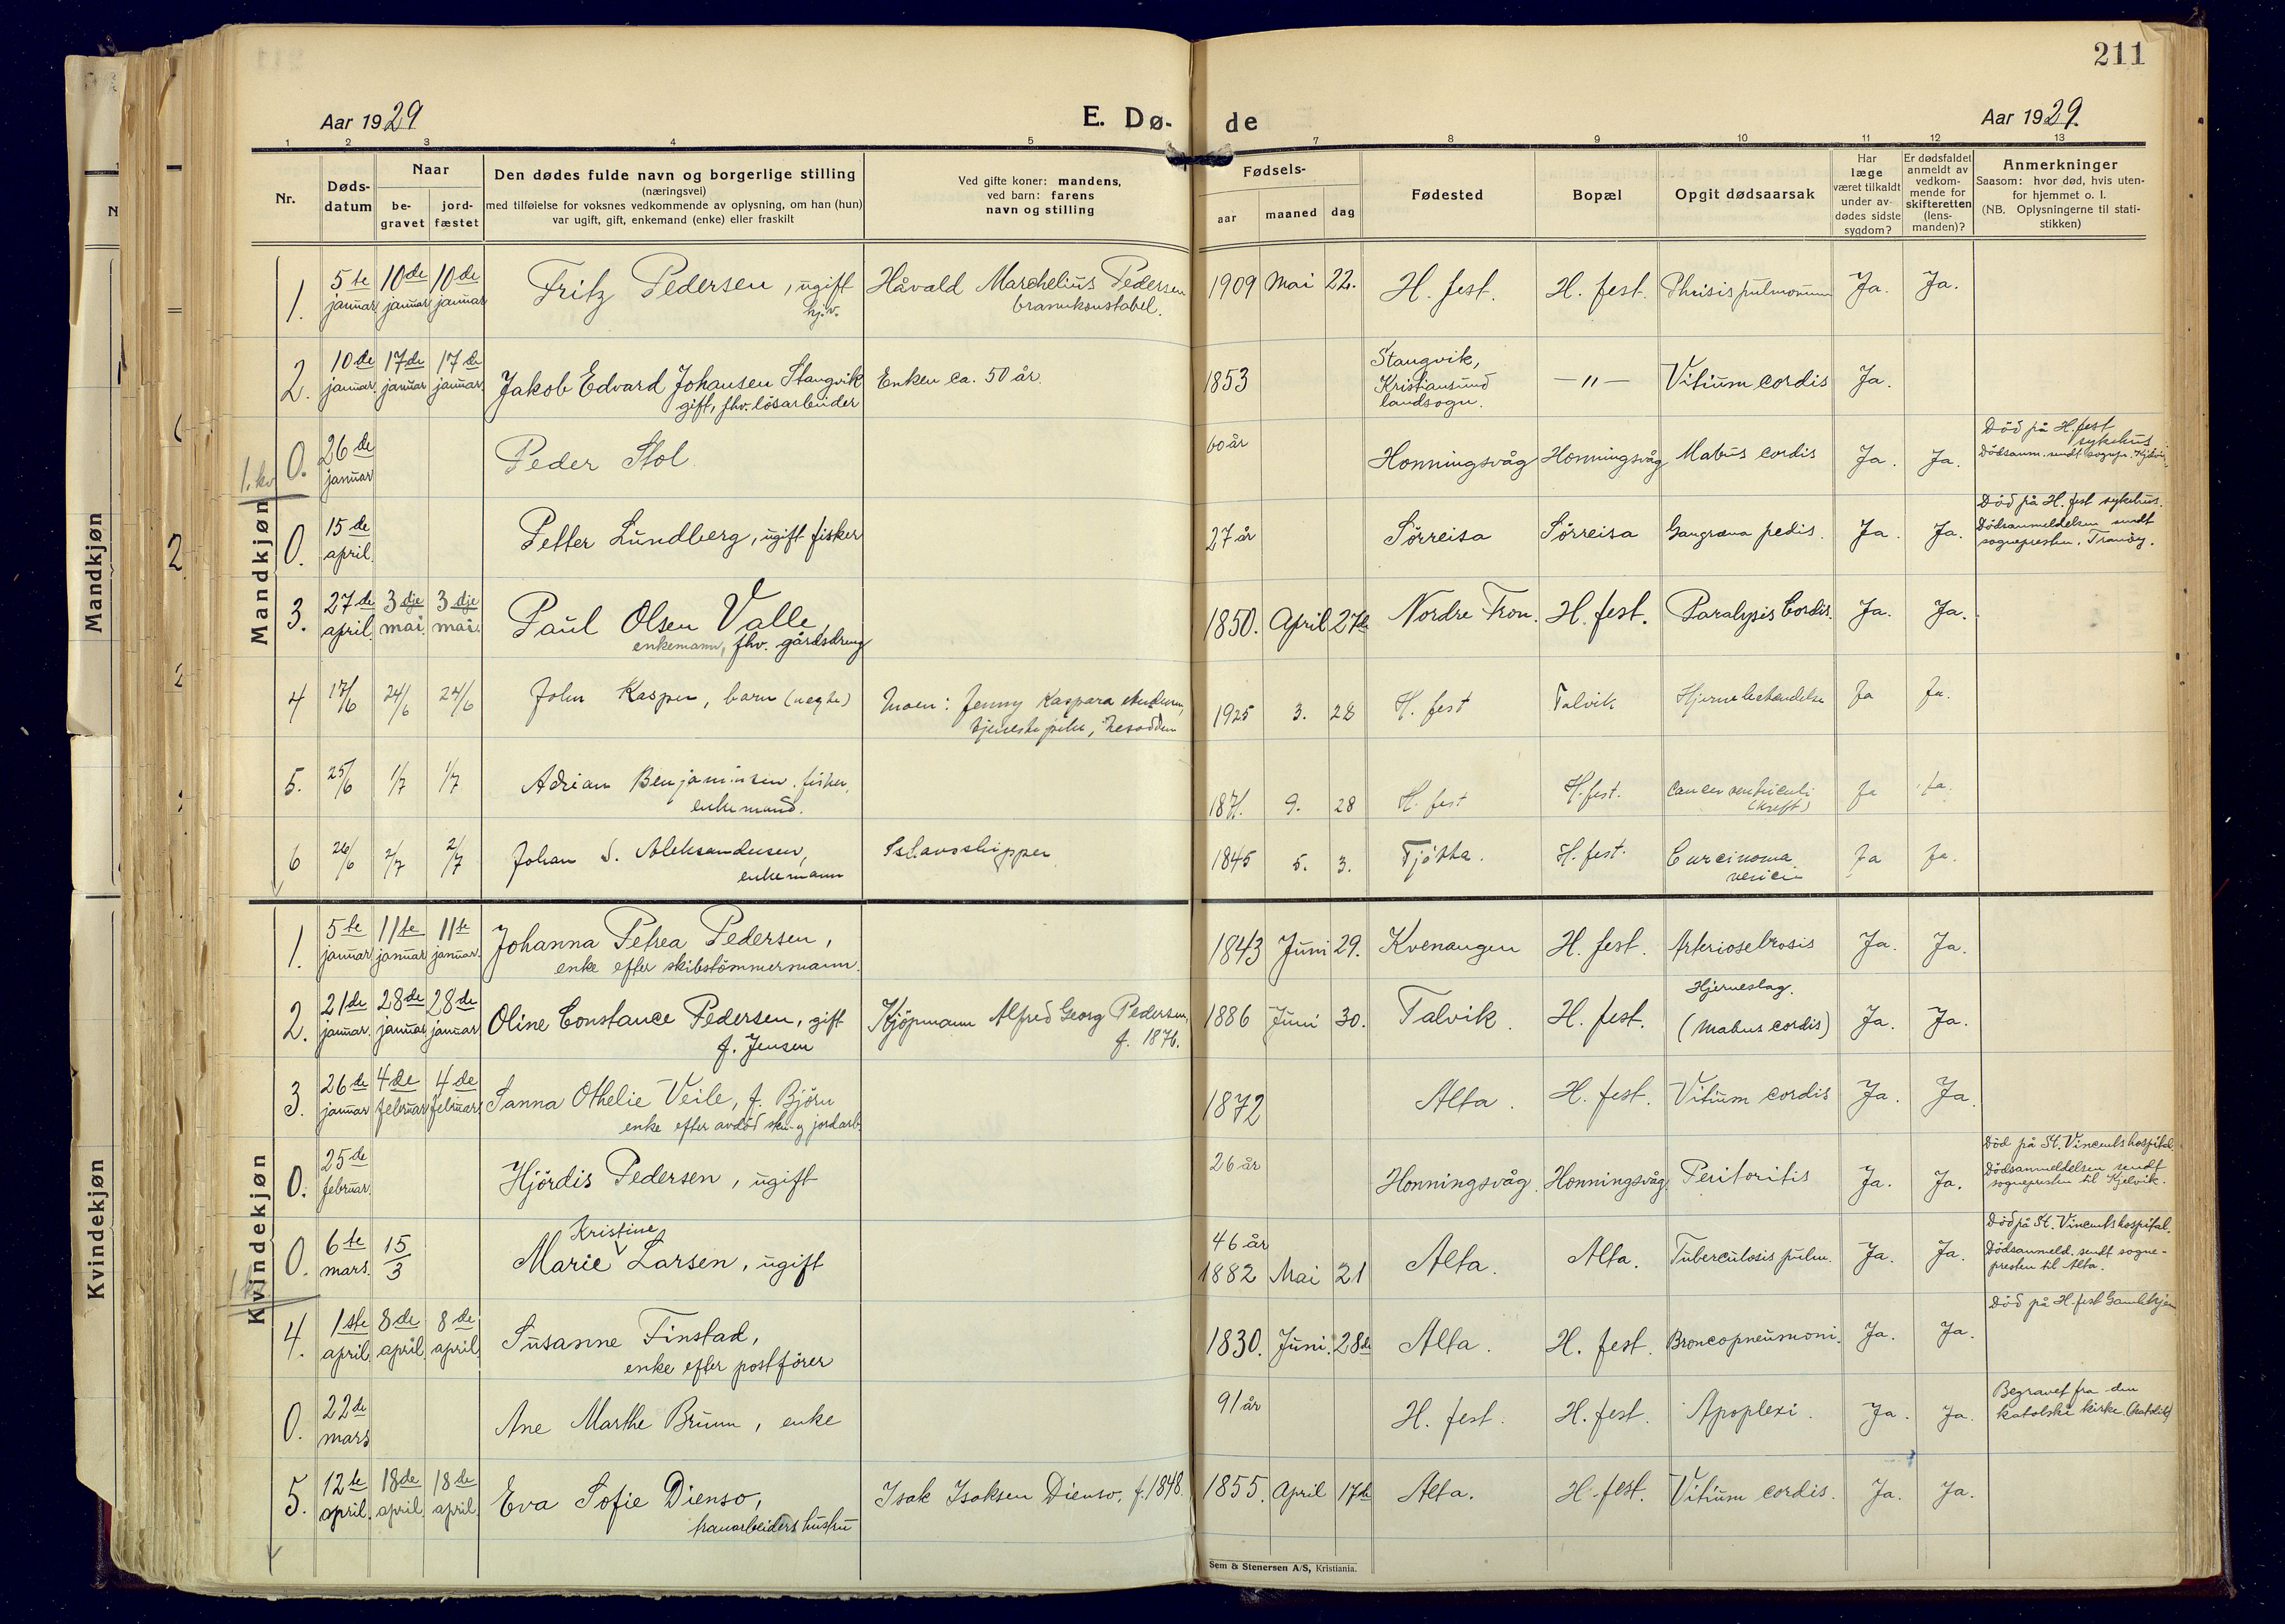 211
Aar 1929
E. Dø-
de
Aar 1929.
1 2 3 4 5 7 8 9 10 11 12 13
Nr.
Døds-
datum
Naar
be-
gravet
jord-
fæstet
Den dødes fulde navn og borgerlige stilling
(næringsvei)
med tilføielse for voksnes vedkommende av oplysning, om han (hun)
var ugift, gift, enkemand (enke) eller fraskilt
Ved gifte koner: mandens,
ved barn: farens
navn og stilling
Fødsels-
aar maaned dag
Fødested
Bopæl
Opgit dødsaarsak
Har
læge
været tilkaldt
under av-
dødes sidste
sygdom?
Er dødsfaldet
anmeldt av
vedkom-
mende for
skifteretten
(lens-
manden)?
Anmerkninger
Saasom: hvor død, hvis uten-
for hjemmet o. l.
(NB. Oplysningerne til stati-
stikken)
Mandkjøn
Mandkjøn
1. 5te januar 10de januar 10de januar Fritz Pedersen, ugift Håvald Marchelius Pedersen 1909 Mai 22. H. fest. H. fest. Phtisis pulmonum Ja. Ja.
hj.v. brannkonstabel.
2. 10de januar 17de januar 17de januar Jakob Edvard Johansen Stangvik Enken ca. 50 år. 1853 Stangvik, Kristiansund landsogn. —"— Vitium cordis Ja.
gift, fhv. løsarbeider
1. kv
0. 26de januar Peder Stol 60 år Honningsvåg Honningsvåg Mabus cordis Ja. Ja. Död på H. fest sykehus
Dödsanm. sendt sognepr. Kjelvik.
0. 15de april. Petter Lundberg, ugift fisker 27 år Sörreisa Sörreisa Gangræna pedis. Ja. Ja. Död på H. fest sykehus.
Dödsanmeldelsen sendt
sognepresten, Tranöy.
3. 27de april. 3dje mai. 3dje mai. Paul Olsen Valle, 1850. April 27de Nordre Fron. H. fest. Paralysis Cordis. Ja. Ja.
enkemann, fhv. gårdsdreng
4 17/6 24/6 24/6 John Kasper, barn (uegte) Moen: Jenny Kaspara 1925 3. 28 H. fest Talvik Ja Ja.
5. 25/6 1/7 1/7 Adrian Benjaminsen. fisker, 1871. 9. 28 H. fest H. fest. Cancer ventriculi Ja Ja.
enkemand. (kreft)
6 26/6 2/7 2/7 Johan S. Aleksandersen, Ishavsskipper 1845 5. 3. Tjøtta. H. fest. Carcinoma Ja Ja.
enkemann
Kvindekjøn
Kvindekjøn
1. 5te januar 11te januar 11te januar. Johanna Petrea Pedersen, 1843 Juni 29. Kvenangen H. fest. Arteriosclrosis Ja. Ja.
enke efter skibstömmermann.
2. 21de januar. 28de januar 28de januar Oline Constance Pedersen, gift Kjöpmann Alfred Georg Pedersen, 1886 Juni 30. Talvik. H. fest. Hjerneslag. (mabus cordis) Ja. Ja.
f. Jensen f. 1876.
3. 26de januar 4de februar 4de februar Sanna Othelie Veile, f. Björn 1872 Alta. H. fest. Vitium cordis Ja. Ja.
enke efter avdöd sku- og jordarb.
0. 25de februar. Hjördis Pedersen, ugift 26 år Honningsvåg. Honningsvåg. Peritoritis Ja. Ja. Död på St. Vincents hospital.
Dödsanmeldelsen sendt
sognepresten til Kjelvik.
Kristine
0. 6te mars. 15/3 Marie Larsen, ugift 46 år 1882 Mai 21 Alta. Alta. Tuberculosis pulm. Ja. Ja. Död på St. Vincents hospital.
Dödsanmeld. sendt sogne-
presten til Alta.
4. 1ste april. 8de april. 8de april Susanne Finstad, 1830. Juni. 28de Alta. H. fest. Broncopneumoni. Ja. Ja. Död på H. fest Gamlehjem
enke efter postförer
0. 22de mars Ane Marthe Bruun, enke 91 år H. fest. H. fest. Apoplexi. Ja. Ja. Begravet fra den
katolske kirke. (katolik)
5. 12te april. 18de april. 18de april. Eva Sofie Dienso, Isak Isaksen Dienso, f. 1848. 1855. April 17de Alta. H. fest. Vitium cordis. Ja. Ja.
tranarbeiders hustru
Sem & Stenersen A/S, Kristiania.